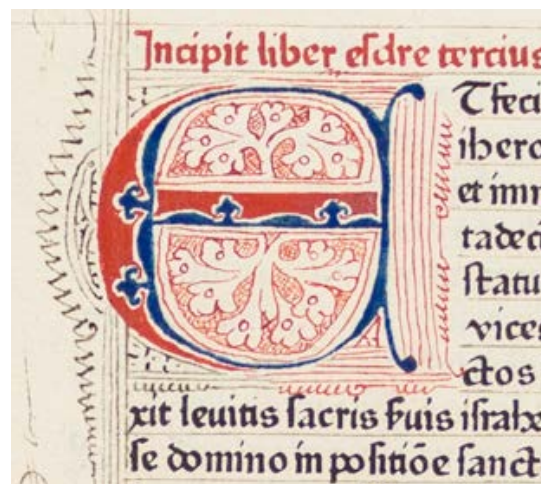 Incipit liber esdre tercius
ET feci
ihero
et imm
tadeci
statu
vices
ctos
xit levitis sacris suis israhe
se domino in positiōe sanct